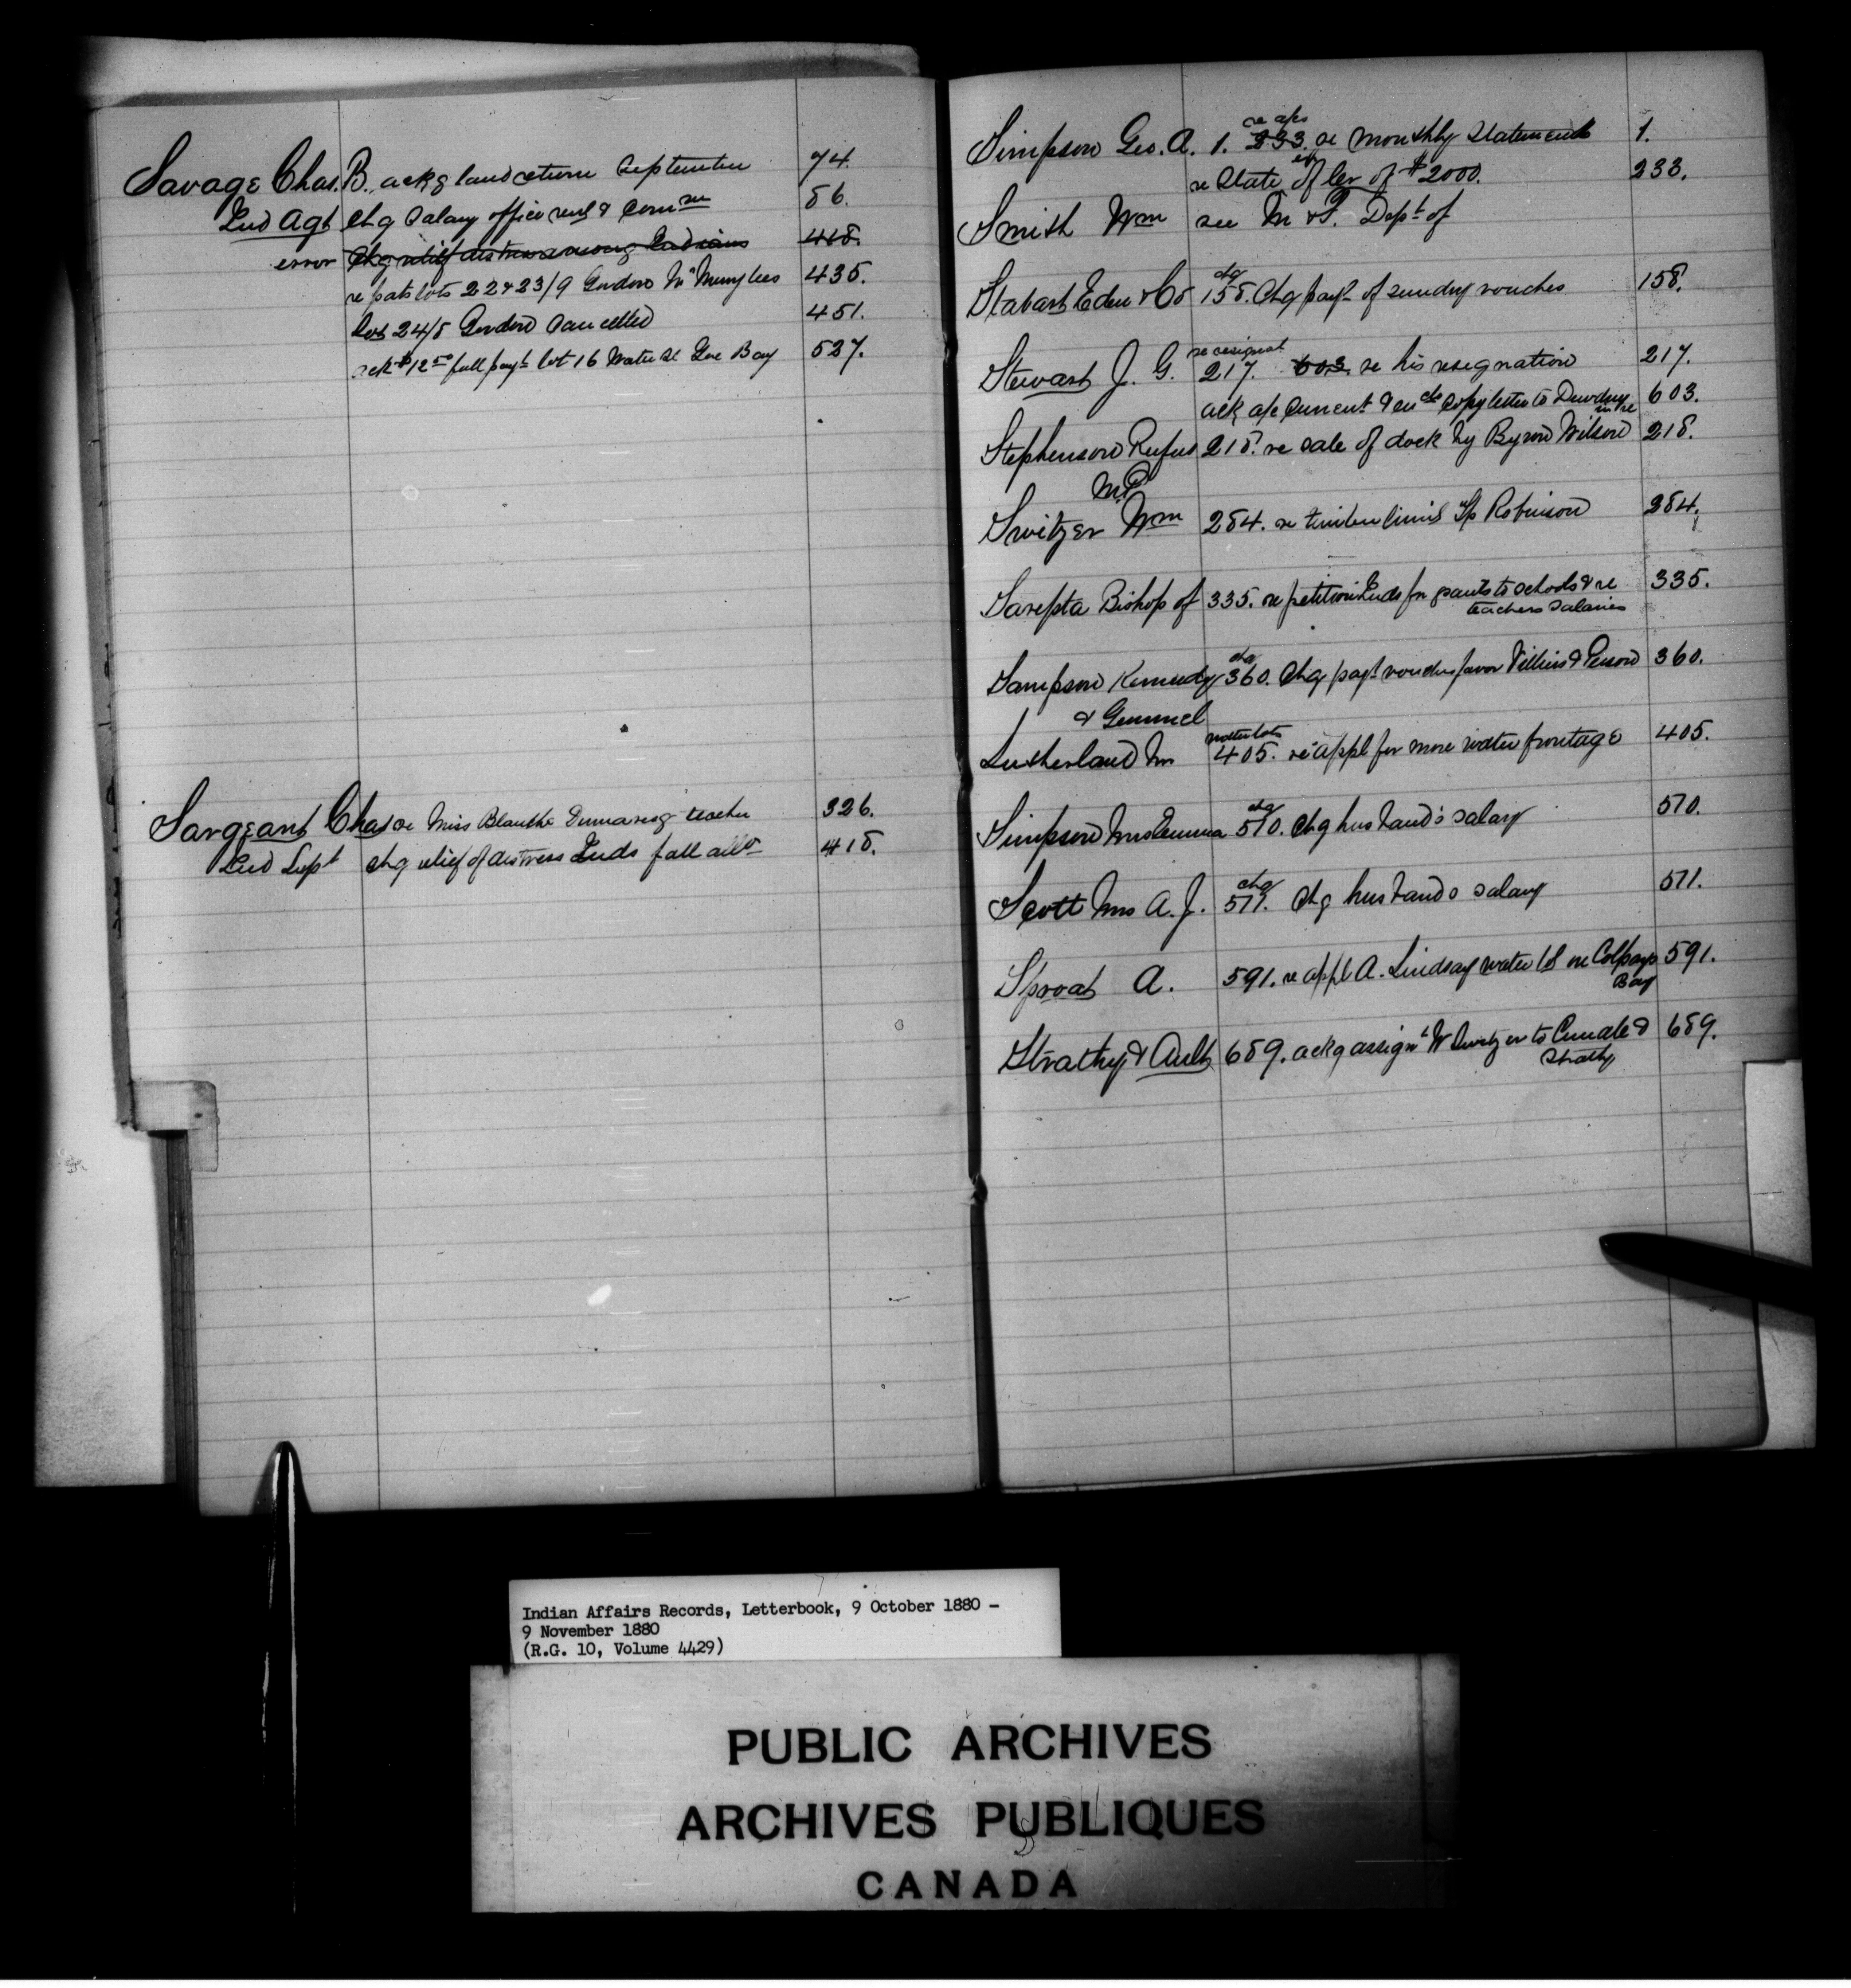 Savage Chas. B. ackg land return September 74.
Ind Agt chq salary office rent & Comsn 86.
error chq relief distress among Indians 418.
re pats lots 22 & 23/9 Gordon 435.
lot 24/8 Gordon cancelled 451.
ack $12.50 full payt lot 16 Water St Gore Bay 527.
Sargeant Chas re Miss Blanche Dumaresq teacher 326.
Ind Supt chq relief of distress Inds fall 418.
re a/cs
Simpson Geo. A. 1. 233. re monthly Statements 1.
re State of Cr of $2000. 233.
Smith Wm see M & F. Dept of
chq
Stabart Eden & Co 158. Chq payt of sundry vouches 158.
re resignat
Stewart J. G. 217. 603. re his resignation 217.
ack a/c Current & copy letter to Dewdney in re 603.
Stephenson Rufus 218. re sale of dock by Byron Wilson 218.
M.P
Switzer Wm 284. re timber limit T/p Robinson 284.
Sarepta Bishop of 335. re petition Inds for grants to schools & re 335.
teachers salaries
chq
Sampson Kennedy 360. Chq payt vouches favor 360.
& Gemmel
water lots
Sutherland Mr 405. re appl for more water frontage 405.
chq
Simpson Mrs Emma 570. Chq husband's salary 570.
chq
Scott Mrs A. J. 571. Chq husbands salary 571.
Sproat A. 591. re appl A. Lindsay water lot on Colpoys 591.
Bay
Strathy & Ault 689. ackg assignt W Switzer to & 689.
Strathy
Indian Affairs Records, Letterbook, 9 October 1880 -
9 November 1880
(R.G. 10, Volume 4429)
PUBLIC ARCHIVES
ARCHIVES PUBLIQUES
CANADA